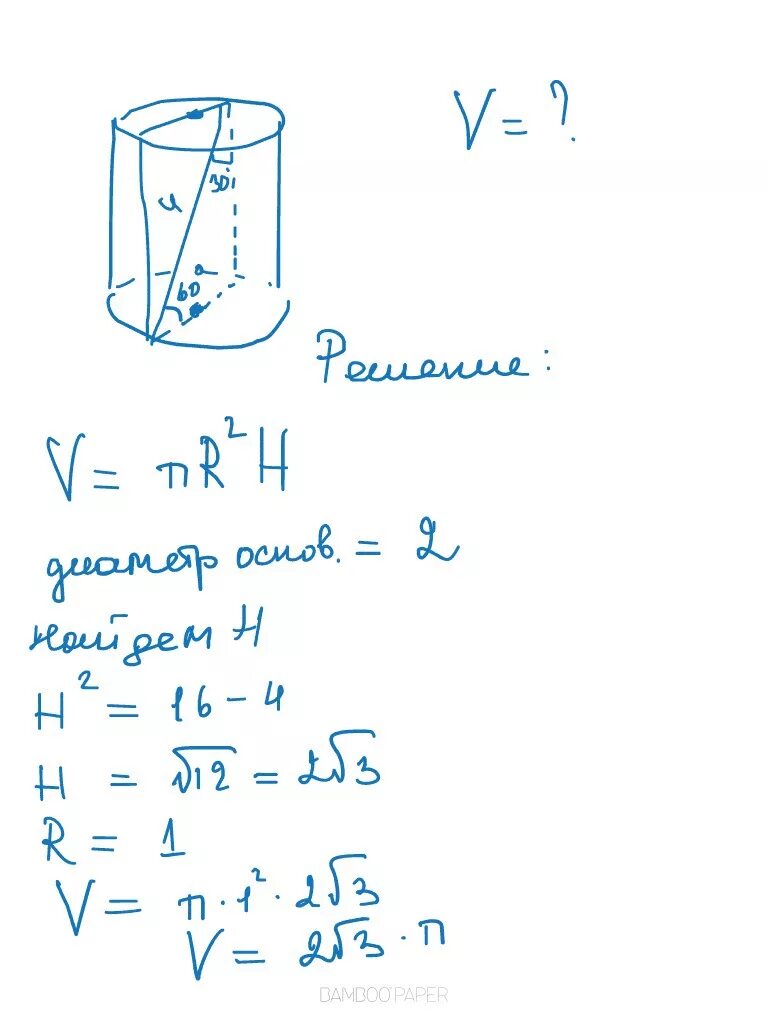 V = ?
30
4
60
Решение:
V = πR²H
диаметр основ. = 2
найдем H
H² = 16 - 4
H = √12 = 2√3
R = 1
V = π · 1² · 2√3
V = 2√3 · π
BAMBOO PAPER